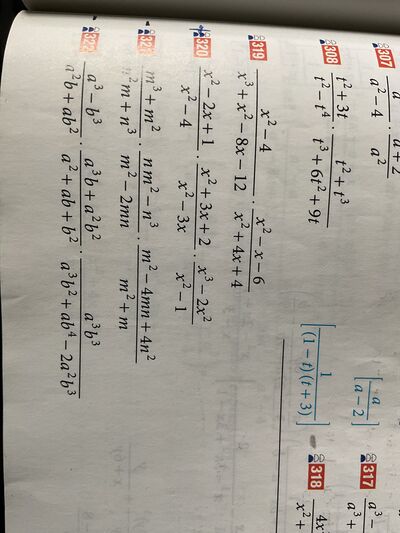 307 a / a² − 4 · a + 2 / a² [a / a − 2]
317 a³ − / a³ +
308 t² + 3t / t² − t⁴ · t² + t³ / t³ + 6t² + 9t [1 / (1 − t)(t + 3)]
318 4x / x² +
319 x² − 4 / x³ + x² − 8x − 12 · x² − x − 6 / x² + 4x + 4
320 x² − 2x + 1 / x² − 4 · x² + 3x + 2 / x² − 3x · x³ − 2x² / x² − 1
32 m³ + m² / n²m + n³ · nm² − n³ / m² − 2mn · m² − 4mn + 4n² / m² + m
322 a³ − b³ / a²b + ab² · a³b + a²b² / a² + ab + b² · a³b³ / a³b² + ab⁴ − 2a²b³